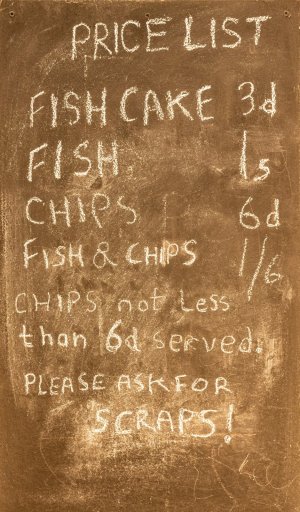 PRICE LIST
FISH CAKE 3d
FISH 1s
CHIPS 6d
FISH & CHIPS 1/6
CHIPS not Less
than 6d served.
PLEASE ASK FOR
SCRAPS!